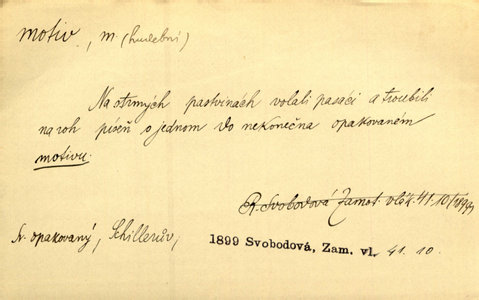 motiv, m (hudební)
Na strmých pastvinách volali pasáci a troubili
na roh píseň o jednom do nekonečna opakovaném
motivu.
R. Svobodová Zamot. vlák. 41. 10/1899
Sv. opakovaný, Schillerův,
1899 Svobodová, Zam. vl. 41. 10.